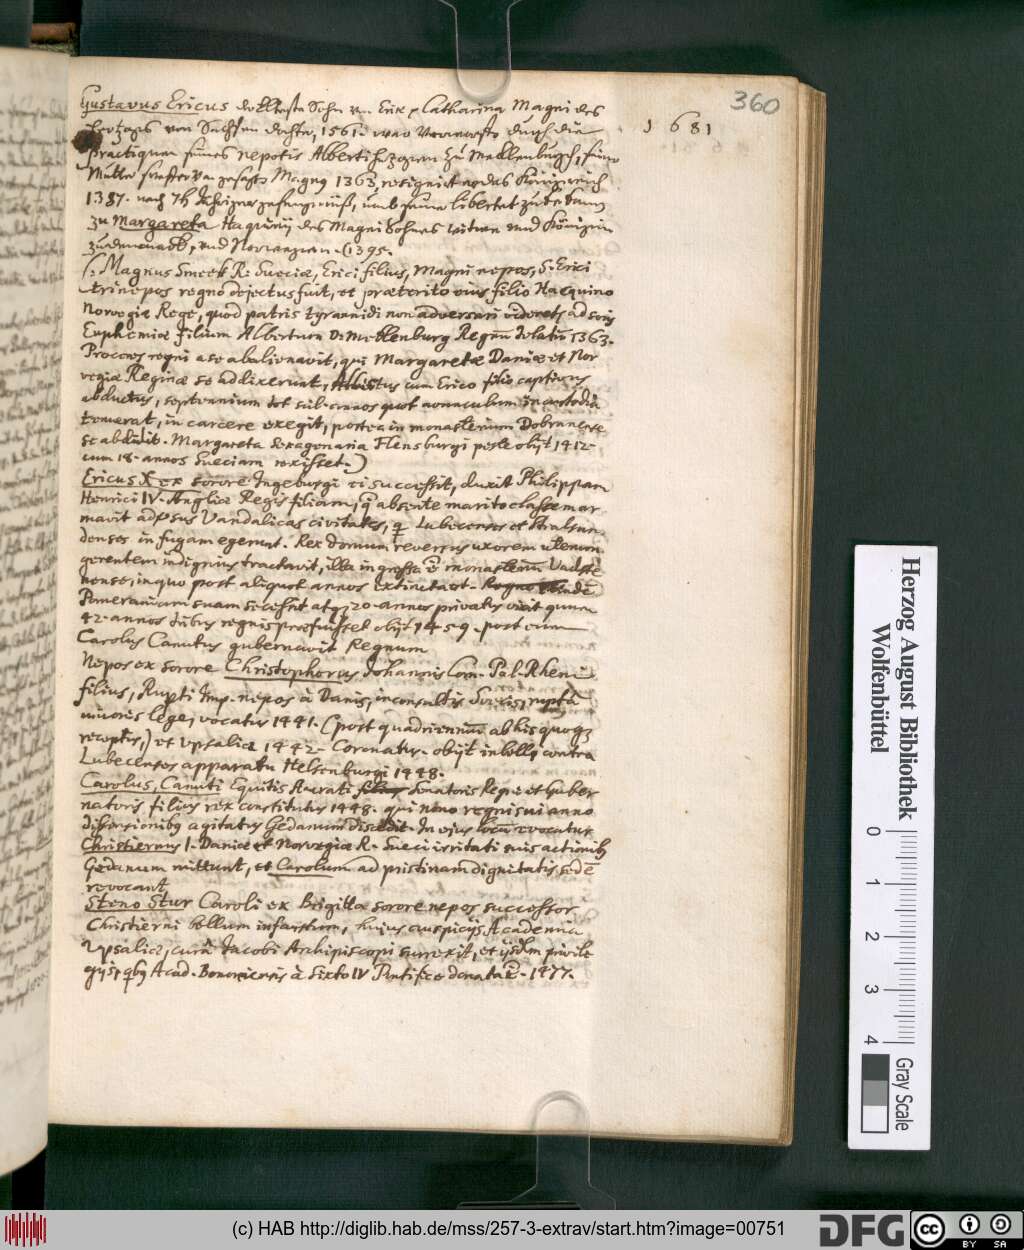 360
1681
Gustavus Ericus der Elteste Sohn von Erix e Catharina Magni des
Hertzogs von Sachsen dochter, 1561. war durch die
practiquen seines nepotis Alberti hezogen zu Mecklenburgh, seine
Mutter Schwester Magny 1363, resignirt Königreich
1387. nach 7 Jahriger gefangniüß, umb seine libertet zu
zu Margareta Haquinij des Magni Sohnes witwen und Königin
zu dennemark, und Norwegen. 1395.
(: Magnus Smeek R. Sueciæ, Erici filius, Magni nepos, S. Erici
trinepos regno dejectus fuit, et præterito eius filio Haequino
Norvegiæ Rege, quod patris tyrannidi non adversari videretr, ad soris
Euphemiæ filium Albertum D. Meklenburg Regnũ delatũ 1363.
Proceres regni a se abalienavit, qui Margaretæ Daniæ et Nor
vegiæ Reginæ se addixerunt, Albertus cum Erico filio captivus
abductus, septennium tot sub annos quot avunculum in custodia
tenuerat, in carcere exegit, postea in monasterium Dobranense
se abdidit. Margareta sexagenaria Flensburgi peste obijt 1412.
cum 18. annos Sueciam rexisset.)
Ericus X ex sorore Ingeburgi ei successit, duxit Philippam
Henrici IV. Angliæ Regis filiam, q̃ absente marito classem ar
mavit adversus Vandalicas civitates, q̃ Lubecenses et Stralsun
denses in fugam egerunt. Rex domum reversus uxorem uterum
gerentem indignius tractavit, illa ingressa ẽ monasterium Vadste
nense, inquo post aliquot annos extincta est.
Pomeraniam suam secessit atq; 20. annos privatus vixit quum
42. annos tribus regnis præfuisset obijt 1459. post eum
Carolus Canutus gubernavit Regnum
Nepos ex sorore Christophorus Johannis Com. Pal. Rheni
filius, Rupti Imp. nepos à Danis, inconsultis Suecis, rupta
unionis lege, vocatus 1441. (post quadriennium ab his quoq;
receptus,) et Upsaliæ 1442. Coronatus. obijt in belli contra
Lubecenses apparatu Helsenburgi 1448.
Carolus, Canuti Equitis Aurati filius Senatoris Regni et Guber
natoris filius rex constitutus 1448. qui nono regni sui anno
dissensionibq agitatus Gedanum discedit. In ejus locũ evocatur
Christiernus I. Daniæ et Norvegiæ R. Sueci irritati suis actionib
Gedanum mittunt, et Carolum ad pristinam dignitatis sedẽ
revocant,
Steno Stur Caroli ex Brigitta sorore nepos successor
Christierni bellum infaustum, hujus auspicijs Academia
Upsaliæ, cura Jacobi Archipiscopi surrexit, et ijsdem privile
gijs, qbq Acad. Bononiensis à Sixto IV Pontifice donata ẽ. 1477.
Herzog August Bibliothek
Wolfenbüttel
0 1 2 3 4
Gray Scale
(c) HAB http://diglib.hab.de/mss/257-3-extrav/start.htm?image=00751
DFG
cc BY SA